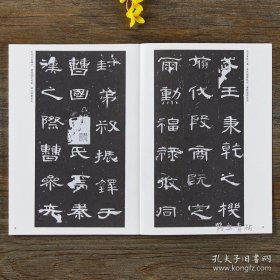 武王秉乾之機
翦伐殷商既定
爾勳福祿攸同
封弟叔振鐸于
曹國因氏焉秦
漢之際曹參夾
孔夫子旧书网